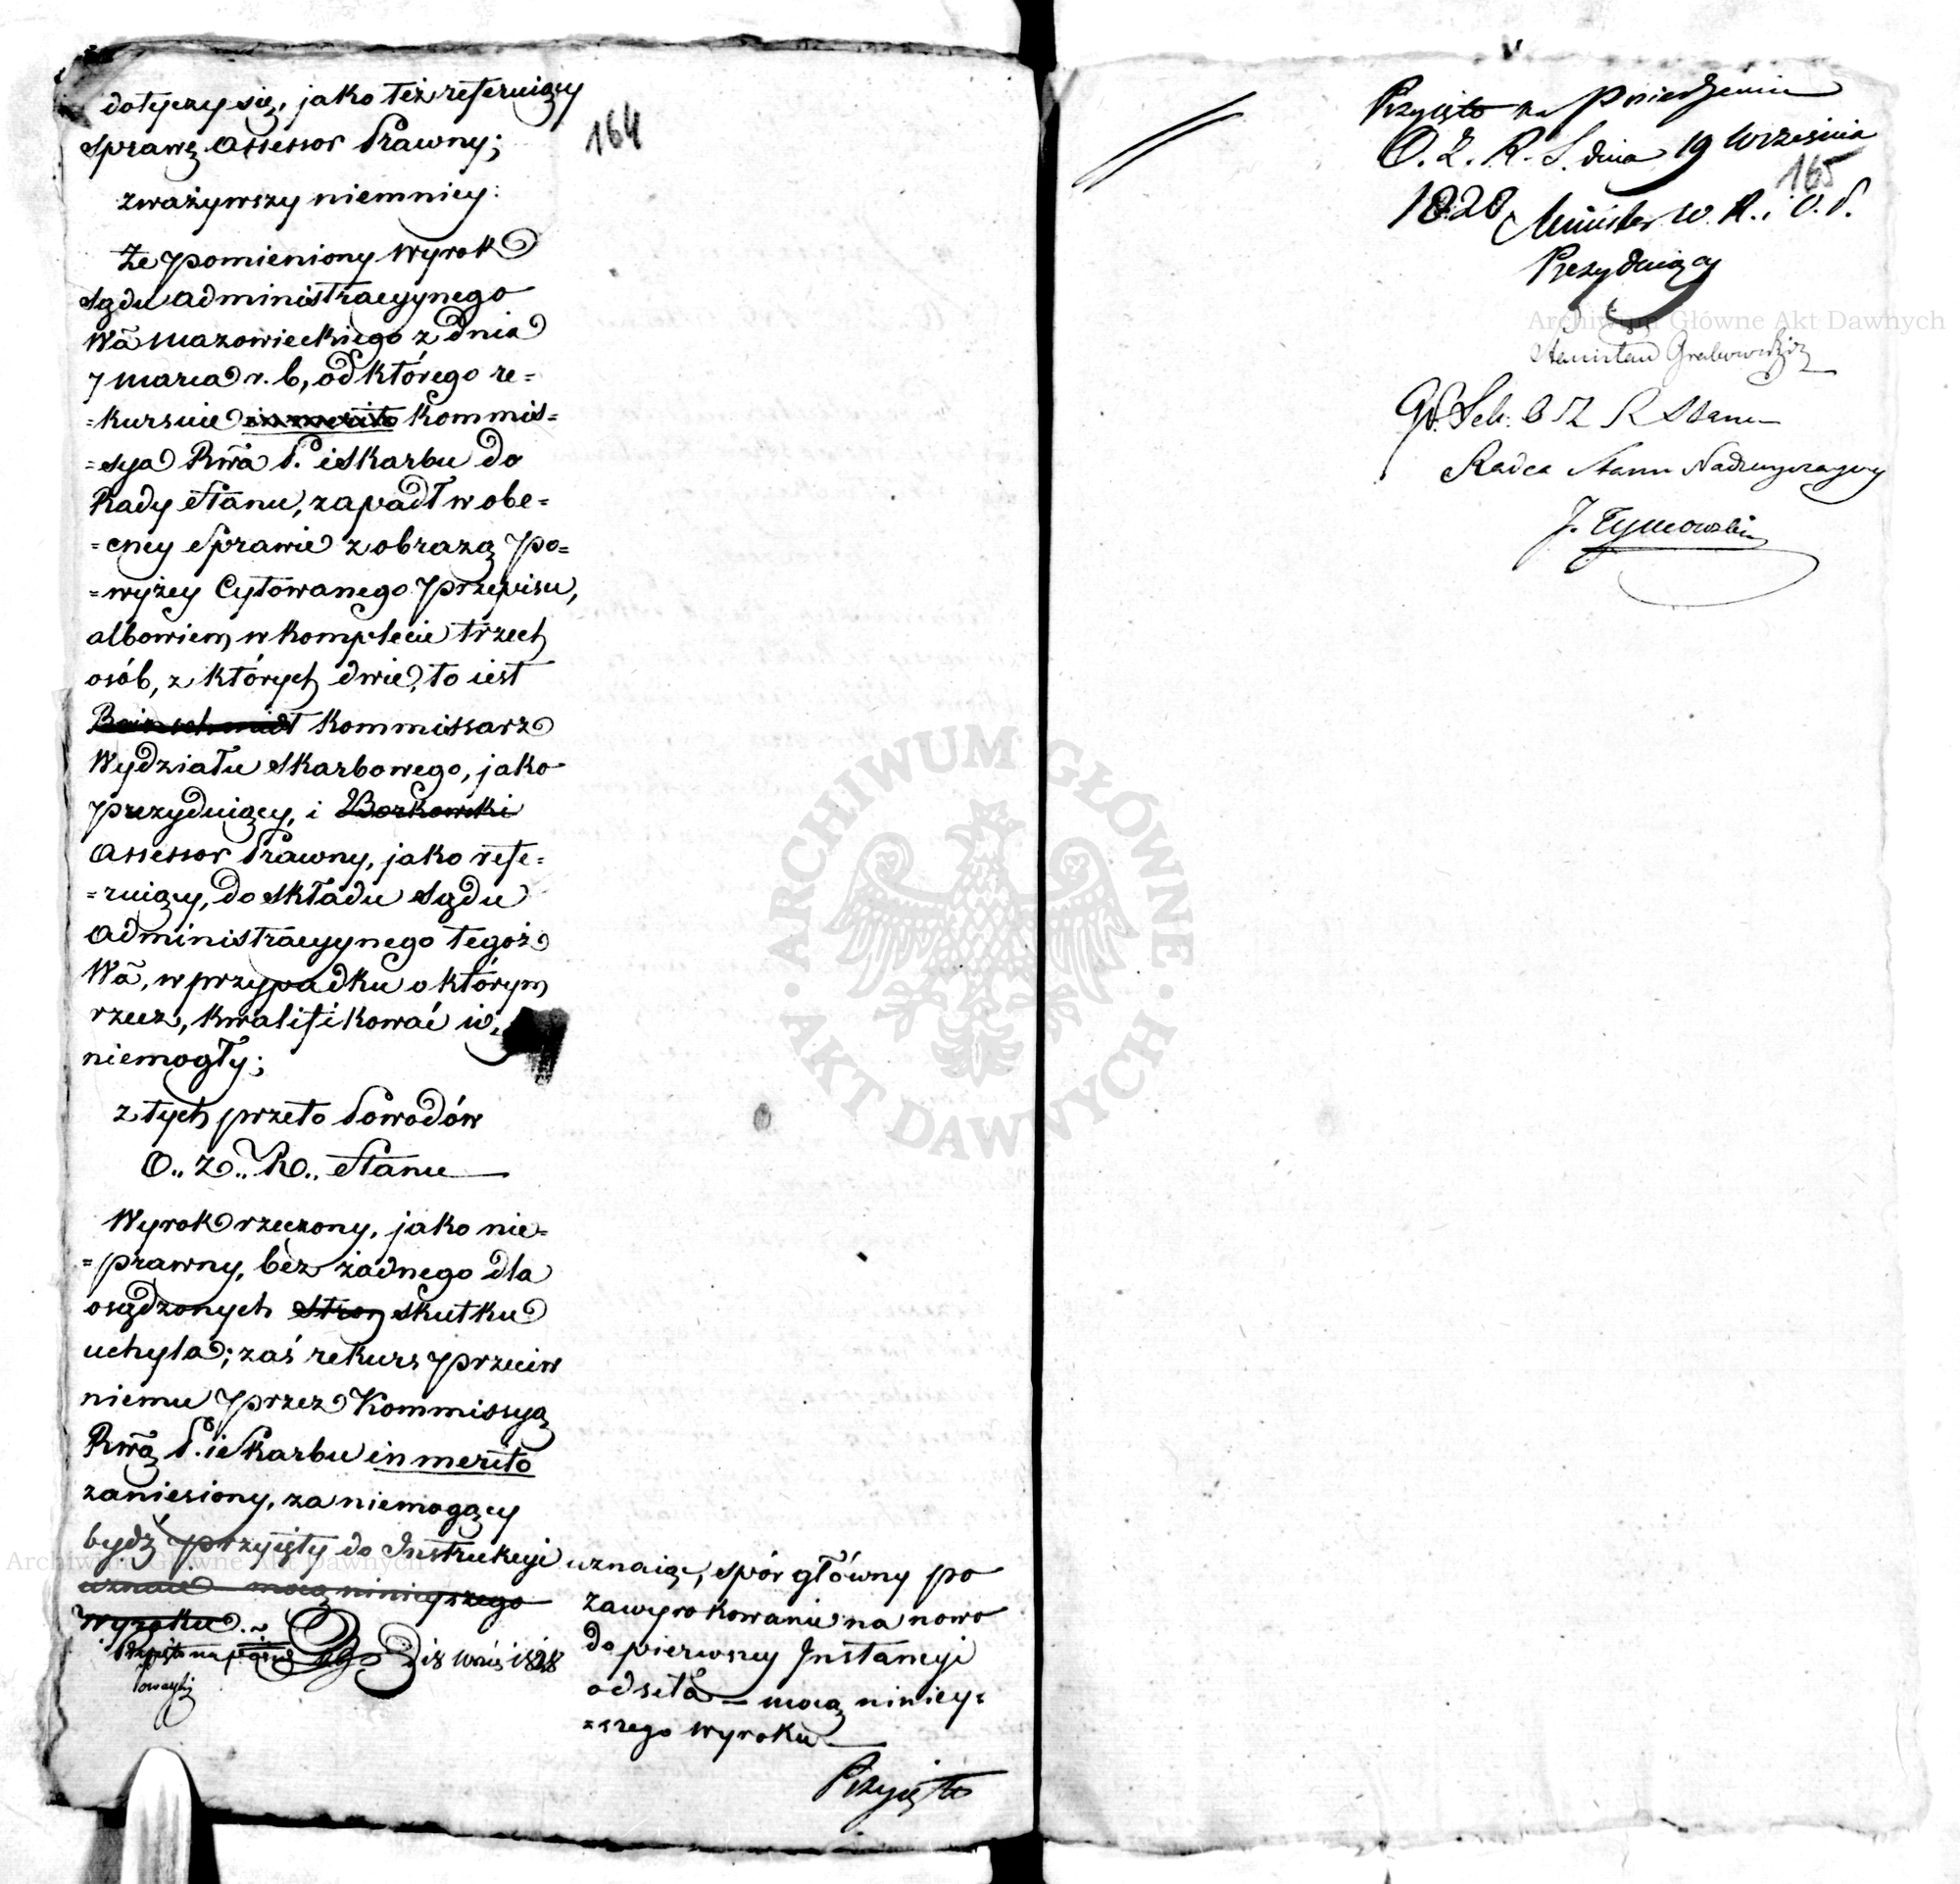 164
dotyczy się, jako też referuiący
sprawę Assessor Prawny;
zważywszy niemniey:
że pomieniony wyrok
Sądu Administracyynego
Wa Mazowieckiego z dnia
7 marca r. b., od którego re=
=kursuie in merito Kommis=
=sya Rwa P. i Skarbu do
Rady Stanu, zapadł w obe=
=cney sprawie z obrazą po=
=wyżey cytowanego przepisu,
albowiem w komplecie trzech
osób, z których dwie, to iest
Kommissarz
Wydziału Skarbowego, jako
prezyduiący, i Borkowski
Assessor Prawny, jako refe=
=ruiący, do składu Sądu
Administracyynego tegoż
Wa, w przypadku o którym
rzecz, kwalifikować się
niemogły;
z tych przeto Powodów
O.. Z.. R.. Stanu
Wyrok rzeczony, jako nie=
=prawny, bez żadnego dla
osądzonych stron skutku
uchyla; zaś rekurs przeciw
niemu przez Kommissyą
Rwą P. i Skarbu in merito
zaniesiony, za niemogący
bydź przyięty do Instrukcyi
uznaie mocą ninieyszego
Wyroku.
uznaiąc, spór główny po
zawyrokowanie na nowo
do pierwszey Instancyi
odseła — mocą niniey=
=szego wyroku
Przyięto
165
Przyięto na Posiedzeniu
O. Z. R. S. dnia 19 Września
1828 Minister W. R. i O. P.
Prezyduiący
Stanisław Grabowski
Radca Stanu Nadzwyczayny
J. Tymowski
Archiwum Główne Akt Dawnych
ARCHIWUM GŁÓWNE
AKT DAWNYCH
Archiwum Główne Akt Dawnych